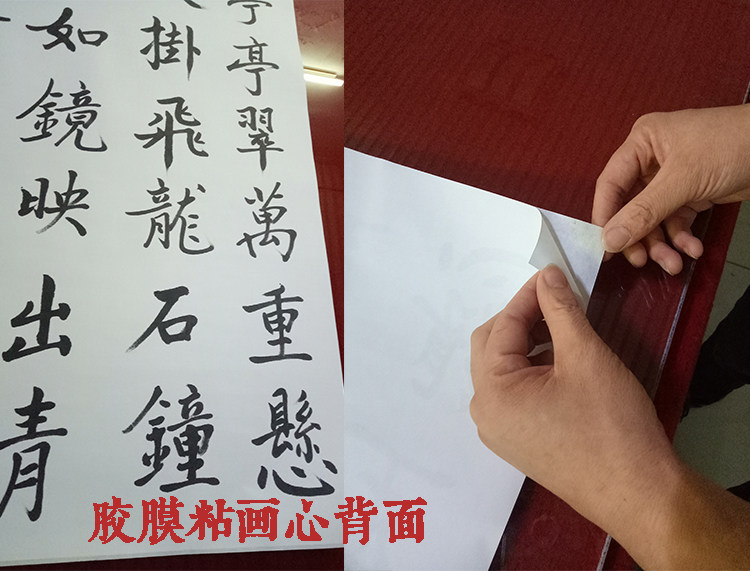 亭翠萬重懸
掛飛龍石鐘
如鏡映出青
胶膜粘画心背面